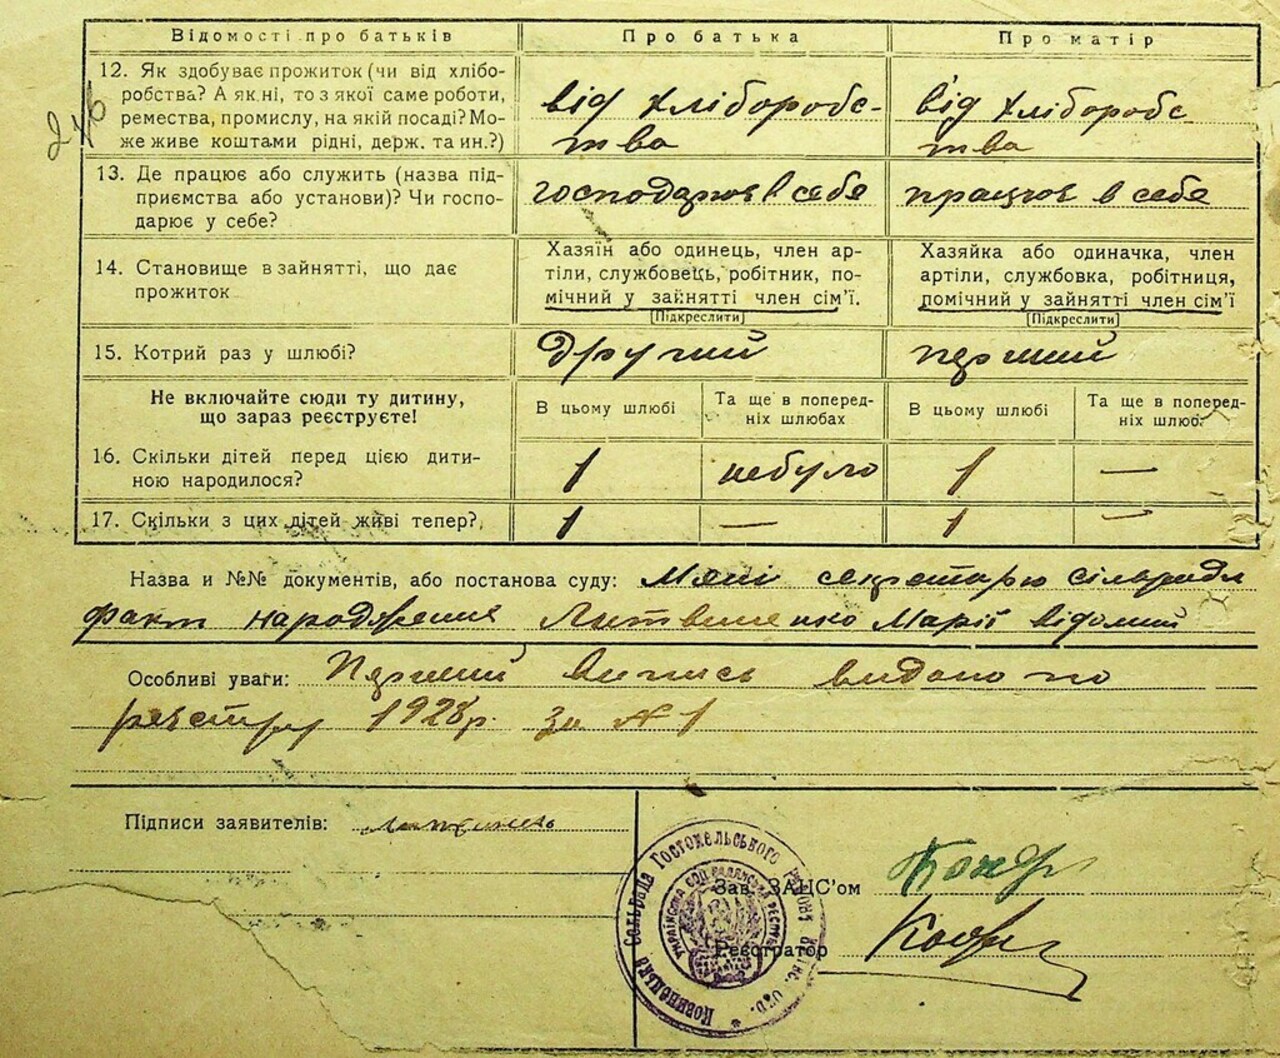 Відомості про батьків
Про батька
Про матір
12. Як здобуває прожиток (чи від хлібо-
робства? А як ні, то з якої саме роботи,
ремества, промислу, на якій посаді? Мо-
же живе коштами рідні, держ. та ин.?)
від хліборобс-
тва
від хліборобс
тва
13. Де працює або служить (назва під-
приємства або установи)? Чи госпо-
дарює у себе?
господарює в себе
працює в себе
14. Становище в зайнятті, що дає
прожиток
Хазяїн або одинець, член ар-
тіли, службовець, робітник, по-
мічний у зайнятті член сім'ї.
[Підкреслити]
Хазяйка або одиначка, член
артіли, службовка, робітниця,
помічний у зайнятті член сім'ї
[Підкреслити]
15. Котрий раз у шлюбі?
другий
перший
Не включайте сюди ту дитину,
що зараз реєструєте!
В цьому шлюбі
Та ще в поперед-
ніх шлюбах
В цьому шлюбі
Та ще в поперед-
ніх шлюб.
16. Скільки дітей перед цією дити-
ною народилося?
1
небуло
1
—
17. Скільки з цих дітей живі тепер?
1
—
1
—
Назва и №№ документів, або постанова суду: Мені секретарю сільради
факт народження Литвиненко Марії відомий
Особливі уваги: Перший випись видано по
реєстру 1928р. за № 1
Підписи заявителів:
Зав. ЗАЦС'ом
Реєстратор
сільрада Гостомельського району
Українська соц. радянська республ